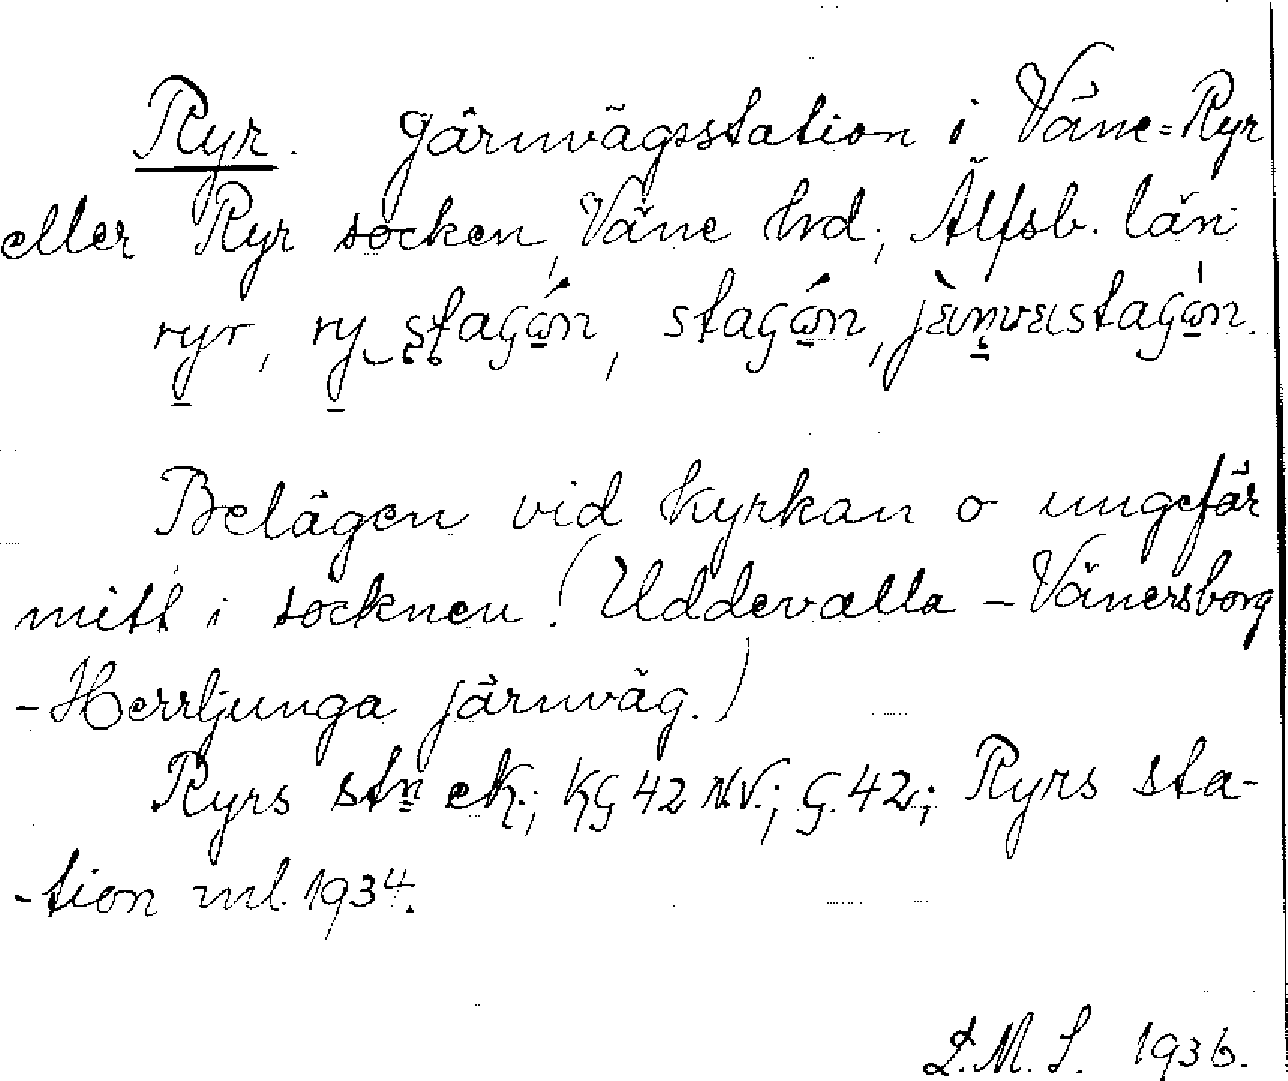 Ryr. Järnvägsstation i Väne=Ryr
eller Ryr socken, Väne hrd, Älfsb. län
ryr, ry stagɷ́n, stagɷ́n, jèn̥vɛɩstagɷ́n.
Belägen vid kyrkan o ungefär
mitt i socknen. (Uddevalla - Vänersborg
-Herrljunga järnväg.)
Ryrs stn eK.; KG 42 N.V.; G. 42; Ryrs sta-
-tion ml. 1934.
L.M.S. 1936.